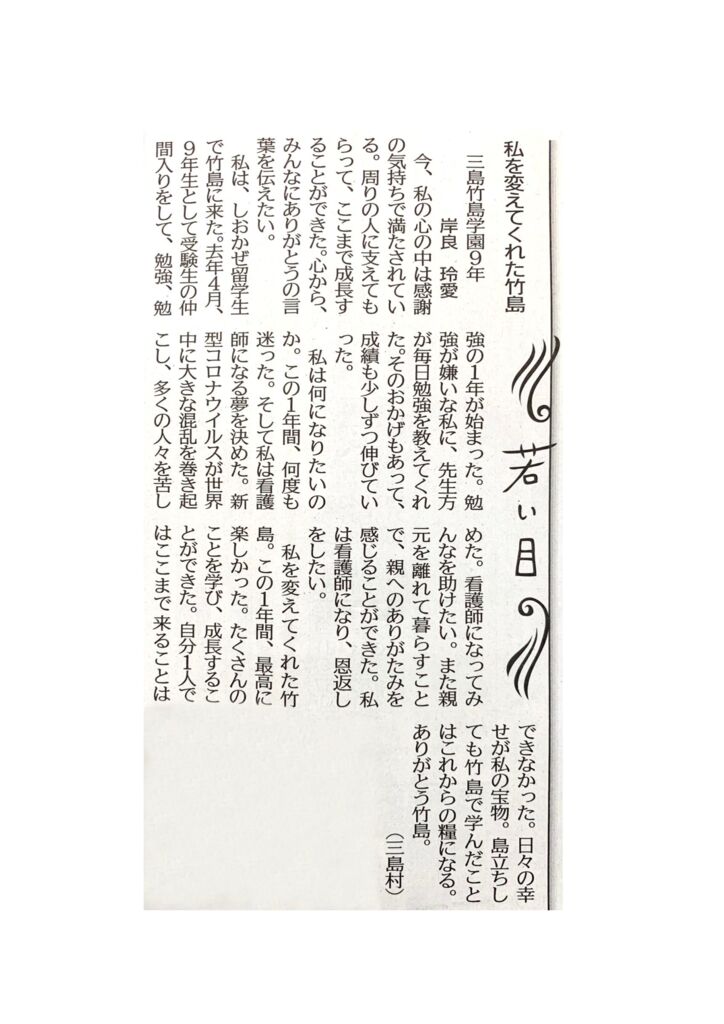 若い目
私を変えてくれた竹島
三島竹島学園9年
岸良 玲愛
今、私の心の中は感謝
の気持ちで満たされてい
る。周りの人に支えても
らって、ここまで成長す
ることができた。心から、
みんなにありがとうの言
葉を伝えたい。
私は、しおかぜ留学生
で竹島に来た。去年4月、
9年生として受験生の仲
間入りをして、勉強、勉
強の1年が始まった。勉
強が嫌いな私に、先生方
が毎日勉強を教えてくれ
た。そのおかげもあって、
成績も少しずつ伸びてい
った。
私は何になりたいの
か。この1年間、何度も
迷った。そして私は看護
師になる夢を決めた。新
型コロナウイルスが世界
中に大きな混乱を巻き起
こし、多くの人々を苦し
めた。看護師になってみ
んなを助けたい。また親
元を離れて暮らすこと
で、親へのありがたみを
感じることができた。私
は看護師になり、恩返し
をしたい。
私を変えてくれた竹
島。この1年間、最高に
楽しかった。たくさんの
ことを学び、成長するこ
とができた。自分1人で
はここまで来ることは
できなかった。日々の幸
せが私の宝物。島立ちし
ても竹島で学んだこと
はこれからの糧になる。
ありがとう竹島。
(三島村)